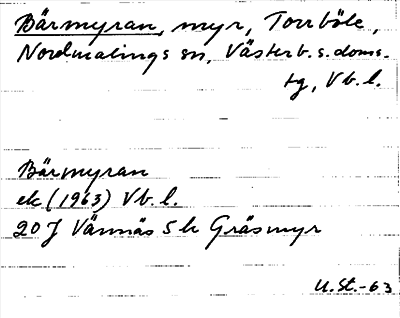 Bärmyran, myr, Torrböle,
Nordmalings sn, Västerb. s. doms.
tg, Vb. l.
Bärmyran
ek (1963) Vb. l.
20 J Vännäs 5 h Gräsmyr
U. St.-63